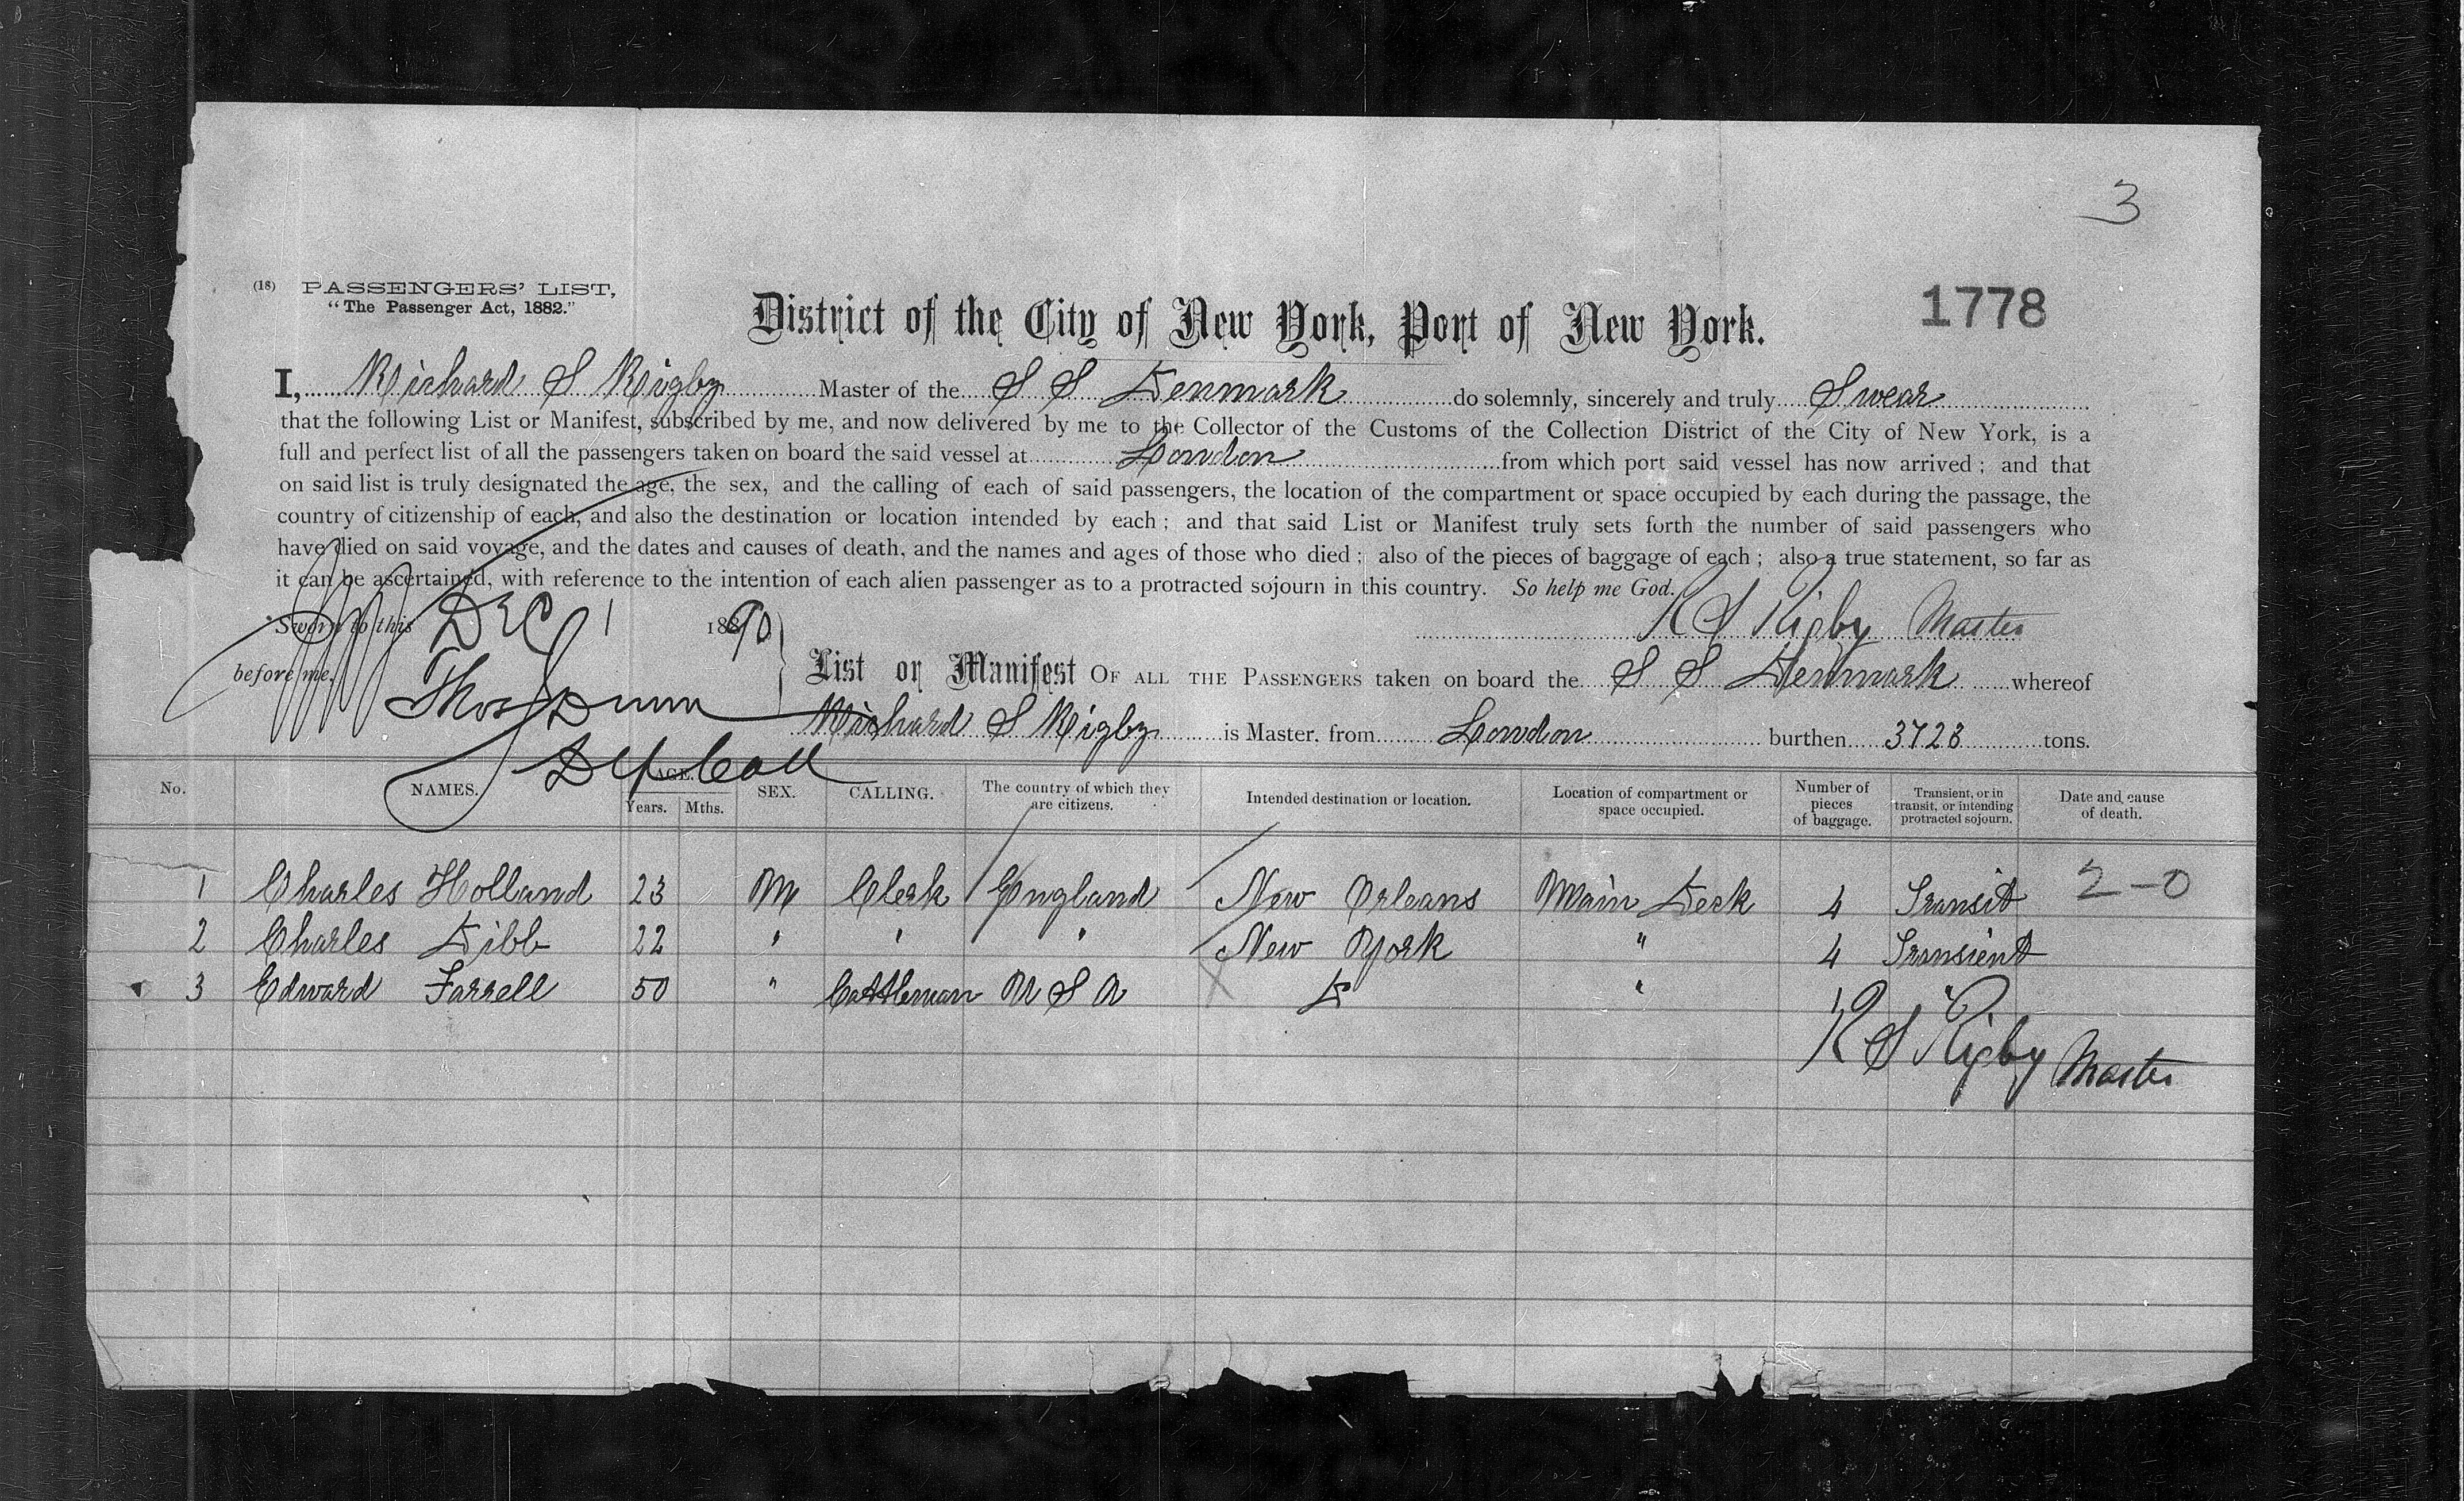 3
(18) PASSENGERS' LIST,
"The Passenger Act, 1882."
District of the City of New York, Port of New York.
1778
I, Richard S Rigby Master of the S S Denmark do solemnly, sincerely and truly Swear
that the following List or Manifest, subscribed by me, and now delivered by me to the Collector of the Customs of the Collection District of the City of New York, is a
full and perfect list of all the passengers taken on board the said vessel at London from which port said vessel has now arrived; and that
on said list is truly designated the age, the sex, and the calling of each of said passengers, the location of the compartment or space occupied by each during the passage, the
country of citizenship of each, and also the destination or location intended by each; and that said List or Manifest truly sets forth the number of said passengers who
have died on said voyage, and the dates and causes of death, and the names and ages of those who died; also of the pieces of baggage of each; also a true statement, so far as
it can be ascertained, with reference to the intention of each alien passenger as to a protracted sojourn in this country. So help me God.
Sworn to this DEC 1 1890 R S Rigby Master
before me, Thos Dunn
Dep Coll
List or Manifest OF ALL THE PASSENGERS taken on board the S S Denmark whereof
Richard S Rigby is Master, from London burthen 3723 tons.
No. NAMES. AGE. Years. Mths. SEX. CALLING. The country of which they are citizens. Intended destination or location. Location of compartment or space occupied. Number of pieces of baggage. Transient, or in transit, or intending protracted sojourn. Date and cause of death.
1 Charles Holland 23 M Clerk England New Orleans Main Deck 4 Transit 2-0
2 Charles Dibb 22 " " " New York " 4 Transient
3 Edward Farrell 50 " Cattleman U S A D " 1 "
R S Rigby Master